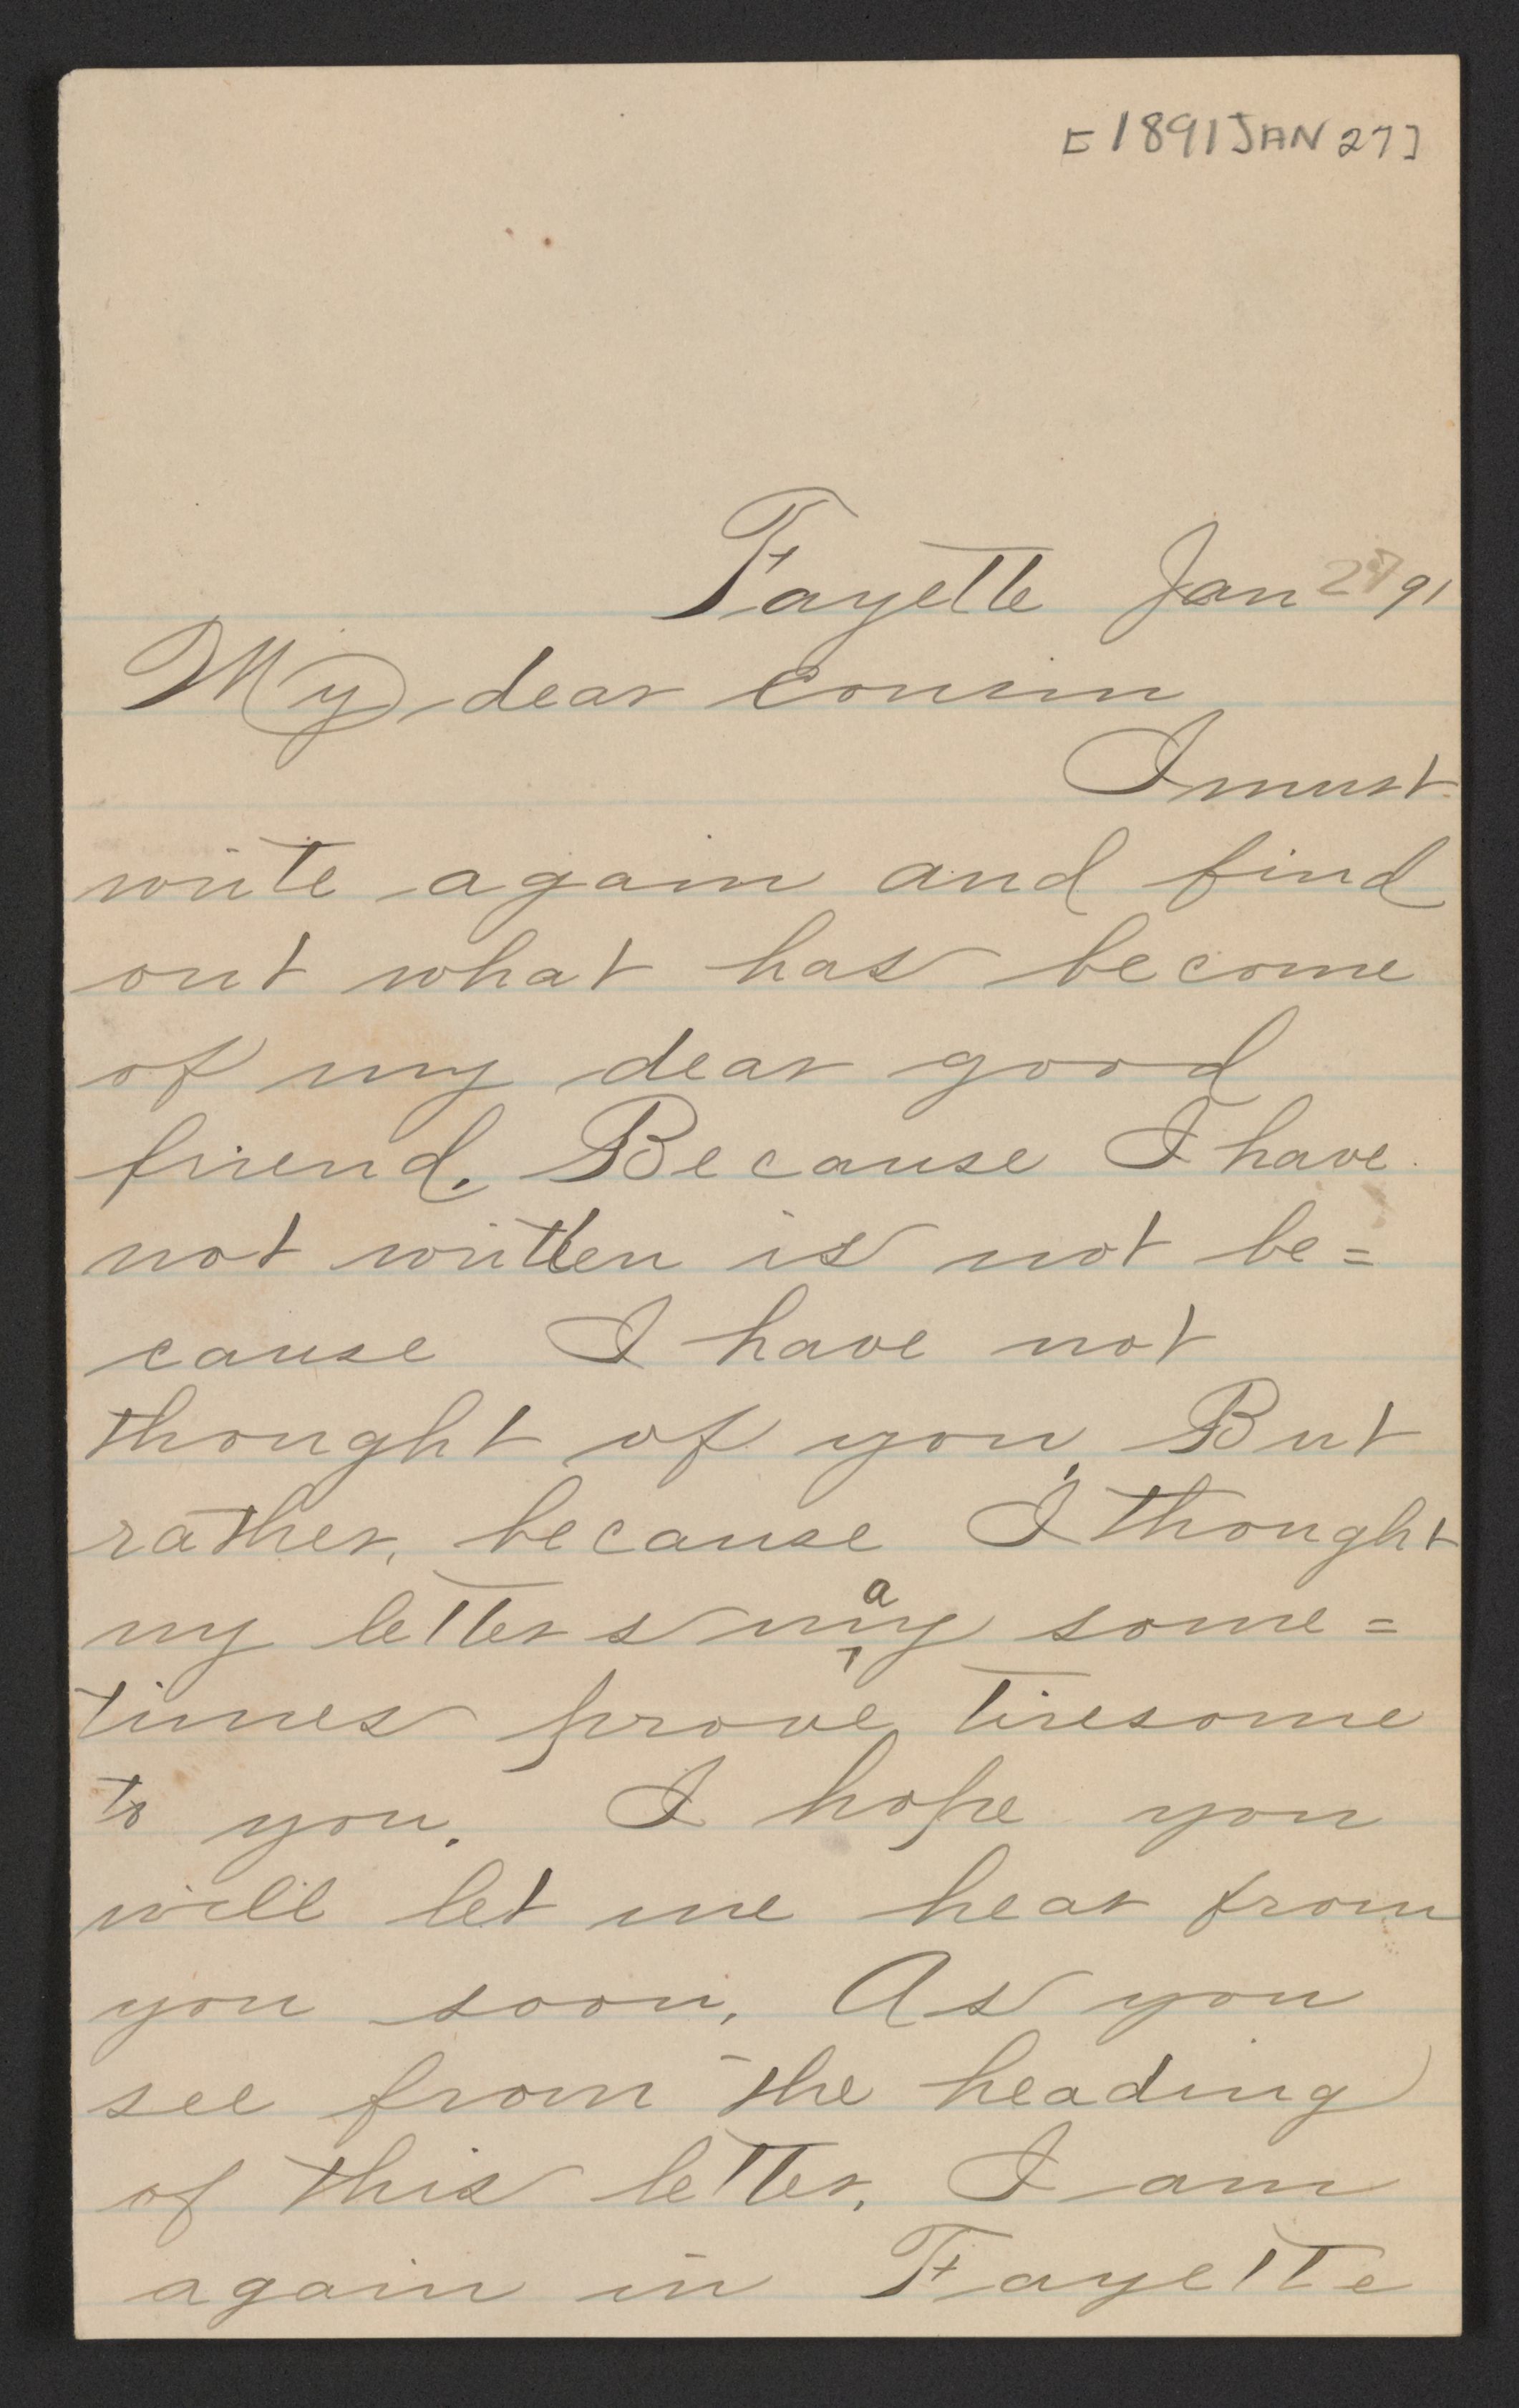 [1891 JAN 27]
Fayette Jan 27 91
My dear Cousin
I must
write again and find
out what has become
of my dear good
friend. Because I have
not written is not be=
cause I have not
thought of you. But
rather, because I thought
my letters may some=
times prove tiresome
to you. I hope you
will let me hear from
you soon, As you
see from the heading
of this letter, I am
again in Fayette